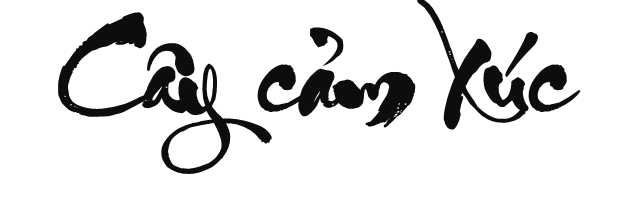 Cây cảm xúc